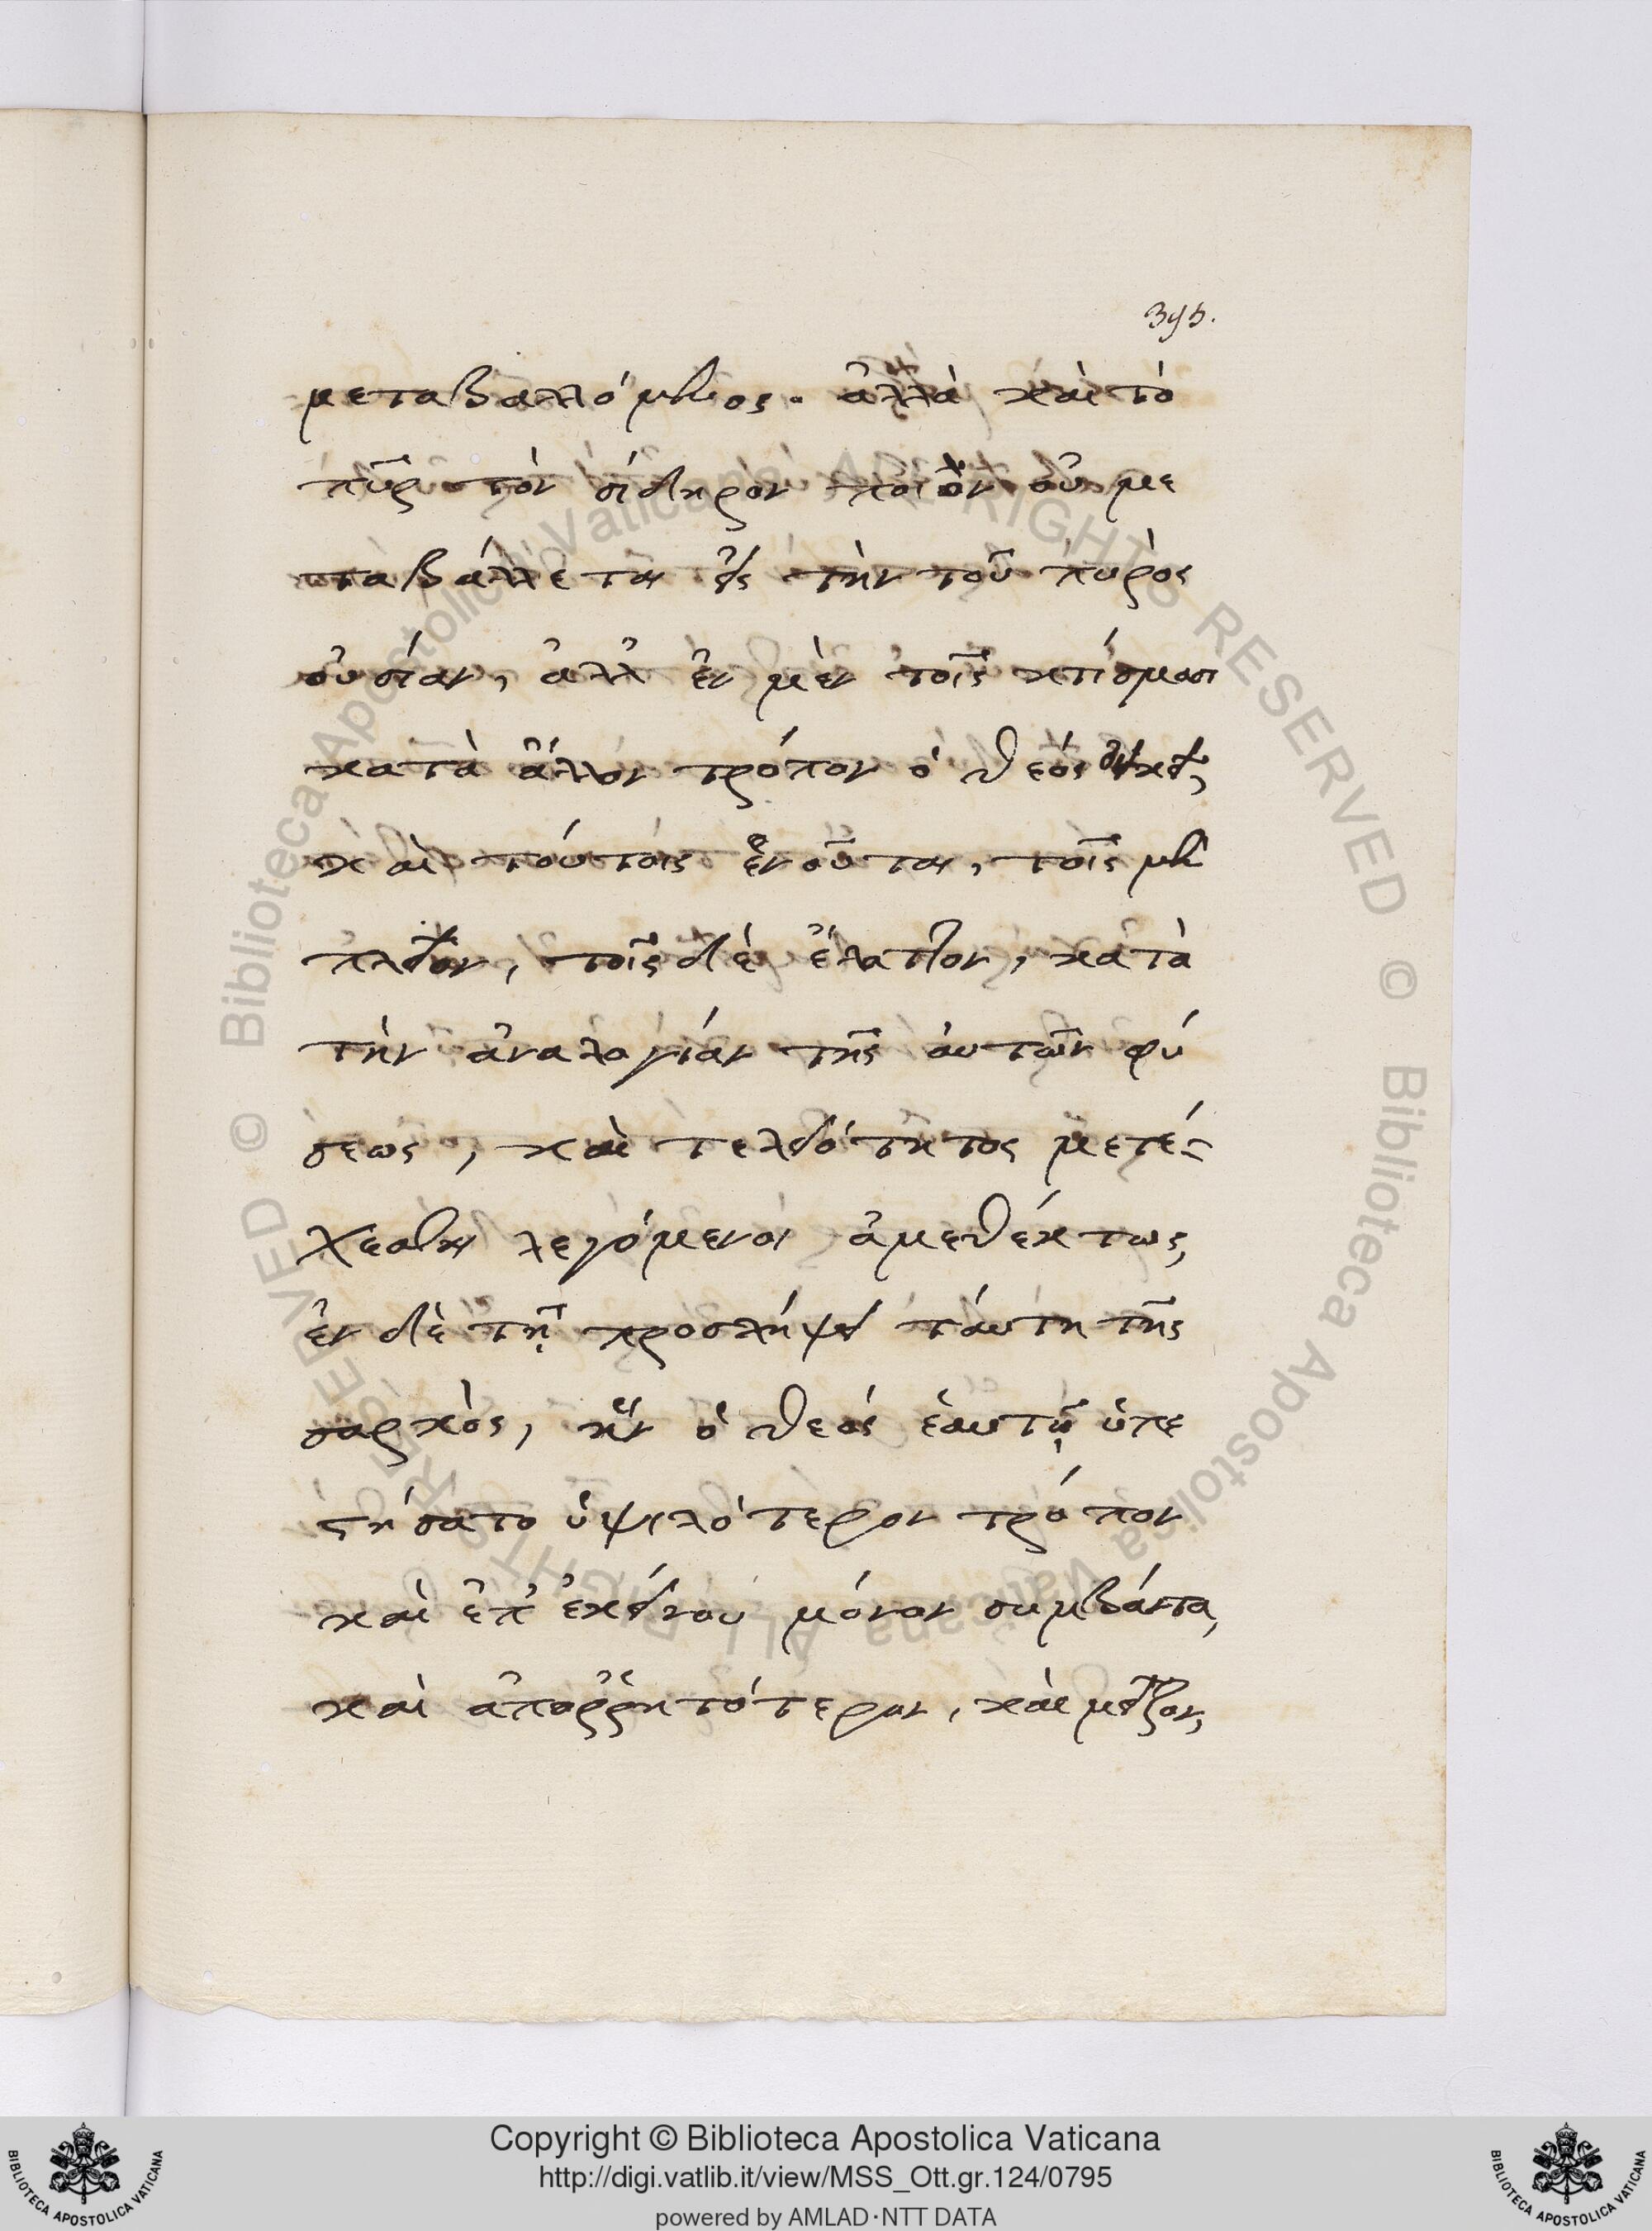 395.
μεταβαλλόμενος. ἀλλὰ καὶ τὸ
πῦρ τὸν σίδηρον ποιοῦν οὐ με
ταβάλλεται εἰς τὴν τοῦ πυρὸς
οὐσίαν, ἀλλ' ἐν μὲν τοῖς κτίσμασι
κατὰ ἄλλον τρόπον ὁ θεὸς ἐνοικεῖ,
καὶ τούτοις ἑνοῦται, τοῖς μὲν
πλεῖον, τοῖς δὲ ἔλαττον, κατὰ
τὴν ἀναλογίαν τῆς αὐτῶν φύ
σεως, καὶ τελειότητος μετέ-
χεσθαι λεγόμενοι ἀμεθέκτως,
ἐν δὲ τῇ προσλήψει ταύτη τῆς
σαρκὸς, ἣν ὁ θεὸς ἑαυτῷ ὑπε
στήσατο ὑψιλότερον τρόπον
καὶ ἐπ' ἐκείνου μόνον συμβάντα,
καὶ ἀποῤῥητότερον, καὶ μεῖζον,
Copyright © Biblioteca Apostolica Vaticana
http://digi.vatlib.it/view/MSS_Ott.gr.124/0795
powered by AMLAD·NTT DATA
BIBLIOTECA APOSTOLICA VATICANA
BIBLIOTECA APOSTOLICA VATICANA
© Biblioteca Apostolica Vaticana ALL RIGHTS RESERVED
© Biblioteca Apostolica Vaticana ALL RIGHTS RESERVED